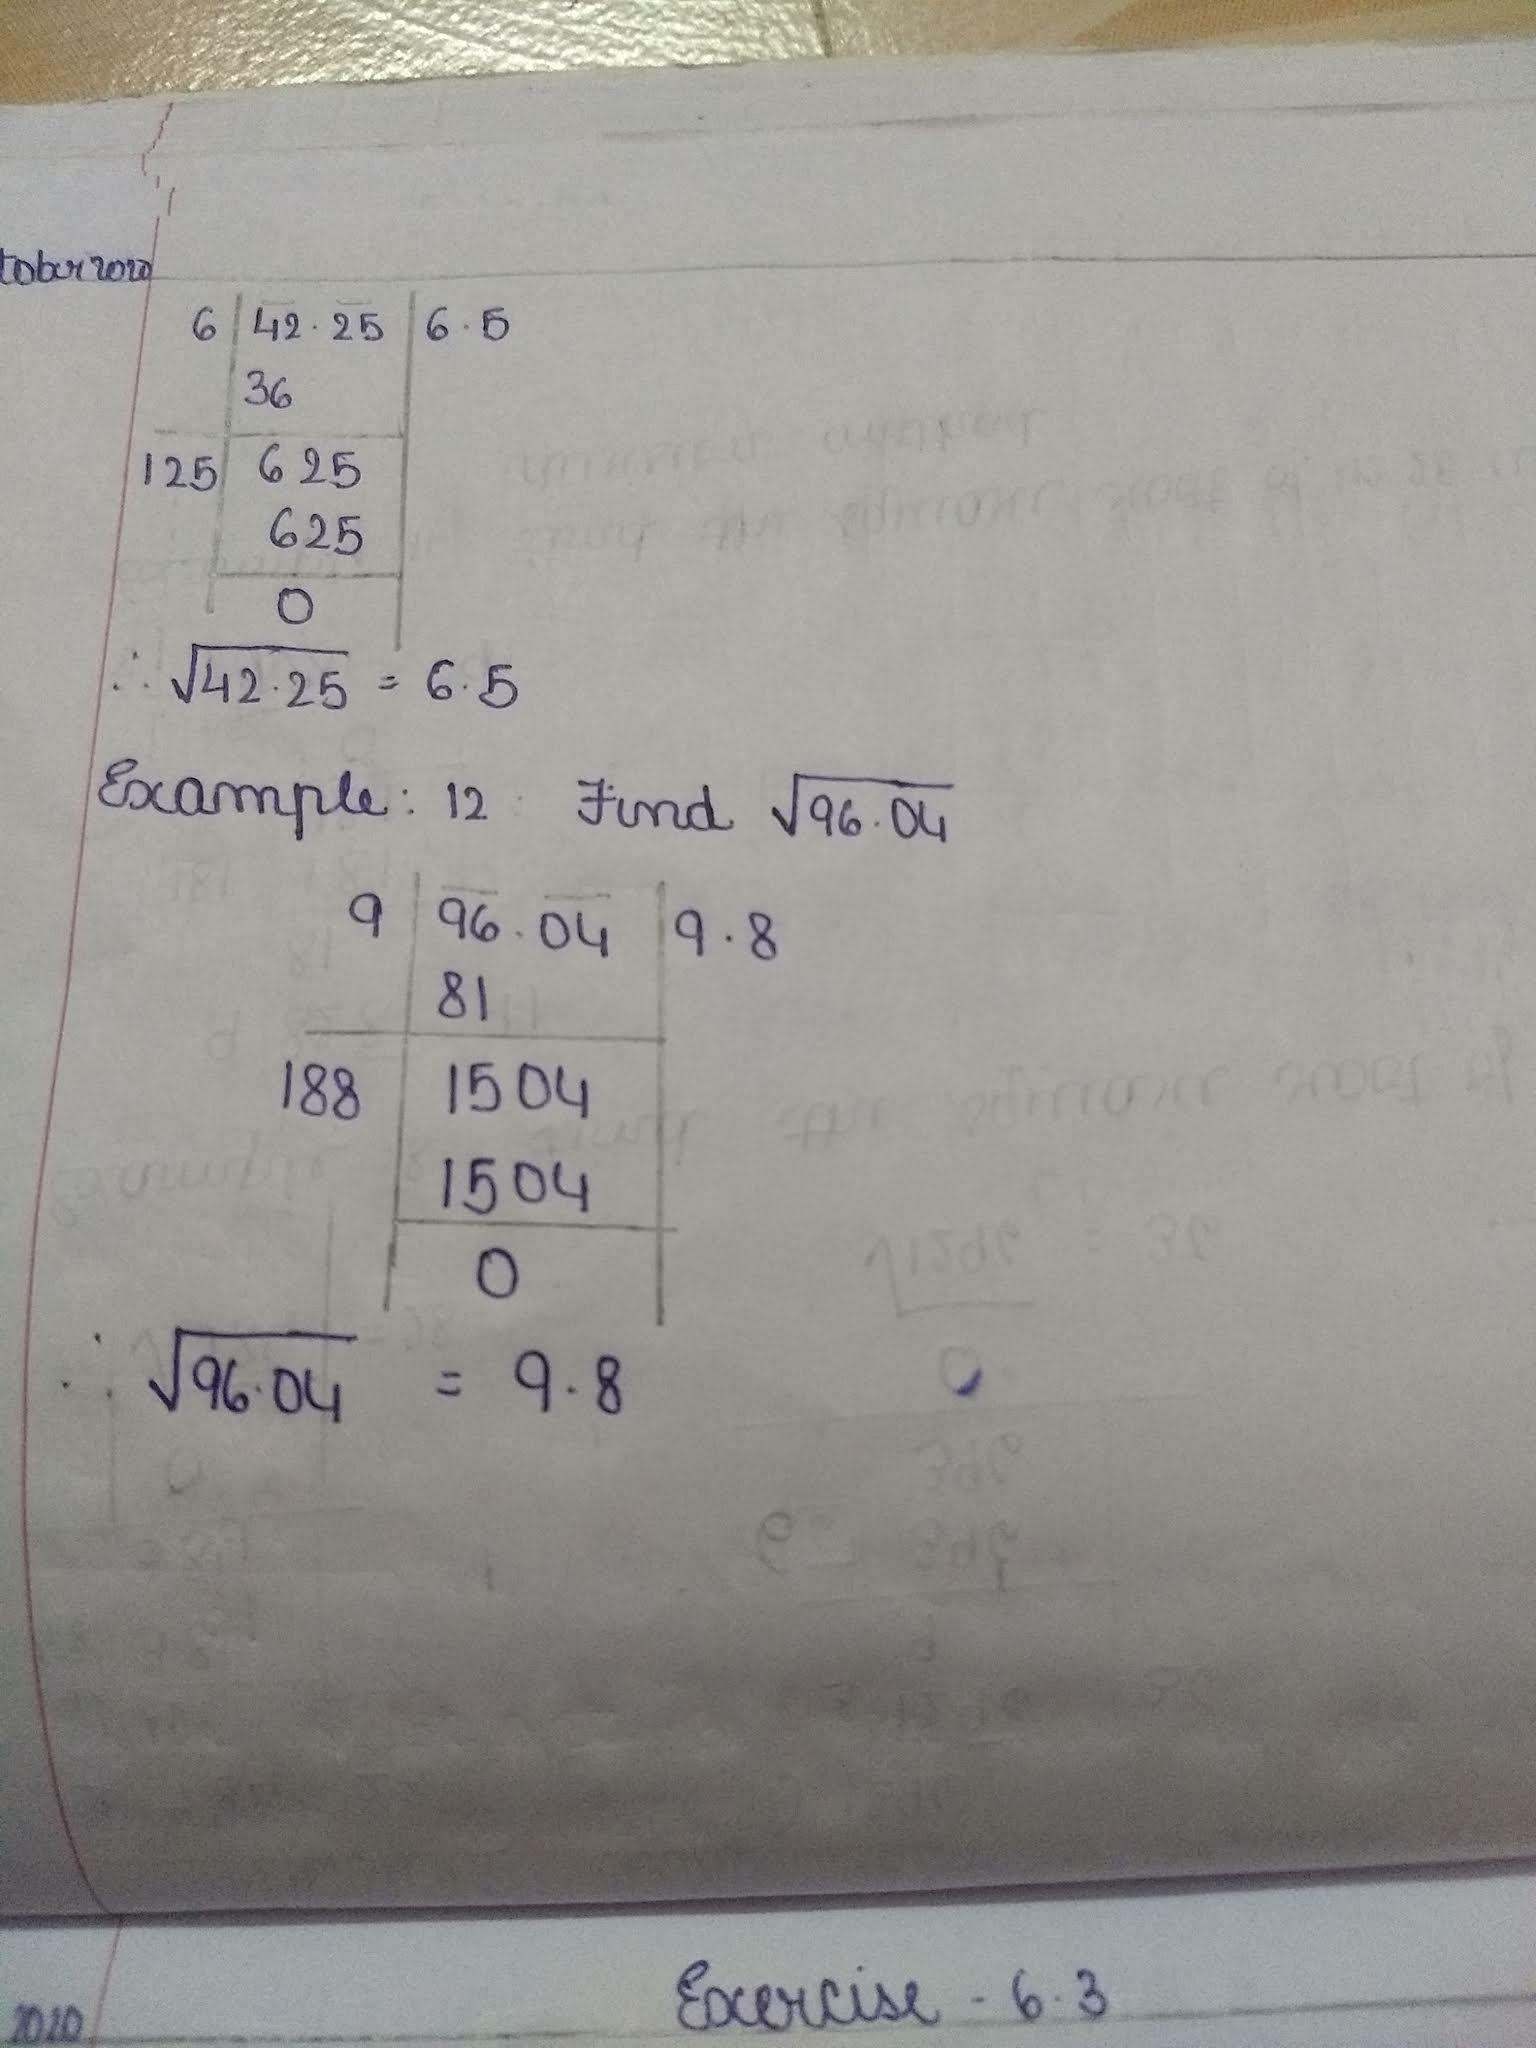 tober 2020
6 | 42.25 | 6.5
36
125 | 625
625
0
∴ √42.25 = 6.5
Example: 12 Find √96.04
9 | 96.04 | 9.8
81
188 | 1504
1504
0
∴ √96.04 = 9.8
Exercise - 6.3
2020